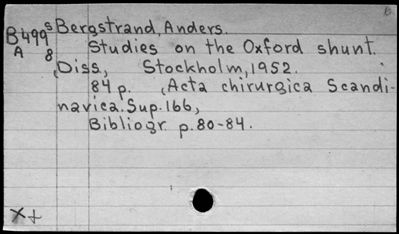 B499 s Bergstrand, Anders.
A 8 Studies on the Oxford shunt.
(Diss, Stockholm, 1952.
84 p. (Acta chirurgica Scandi-
navica. Sup. 166,
Bibliogr p. 80-84.
X+